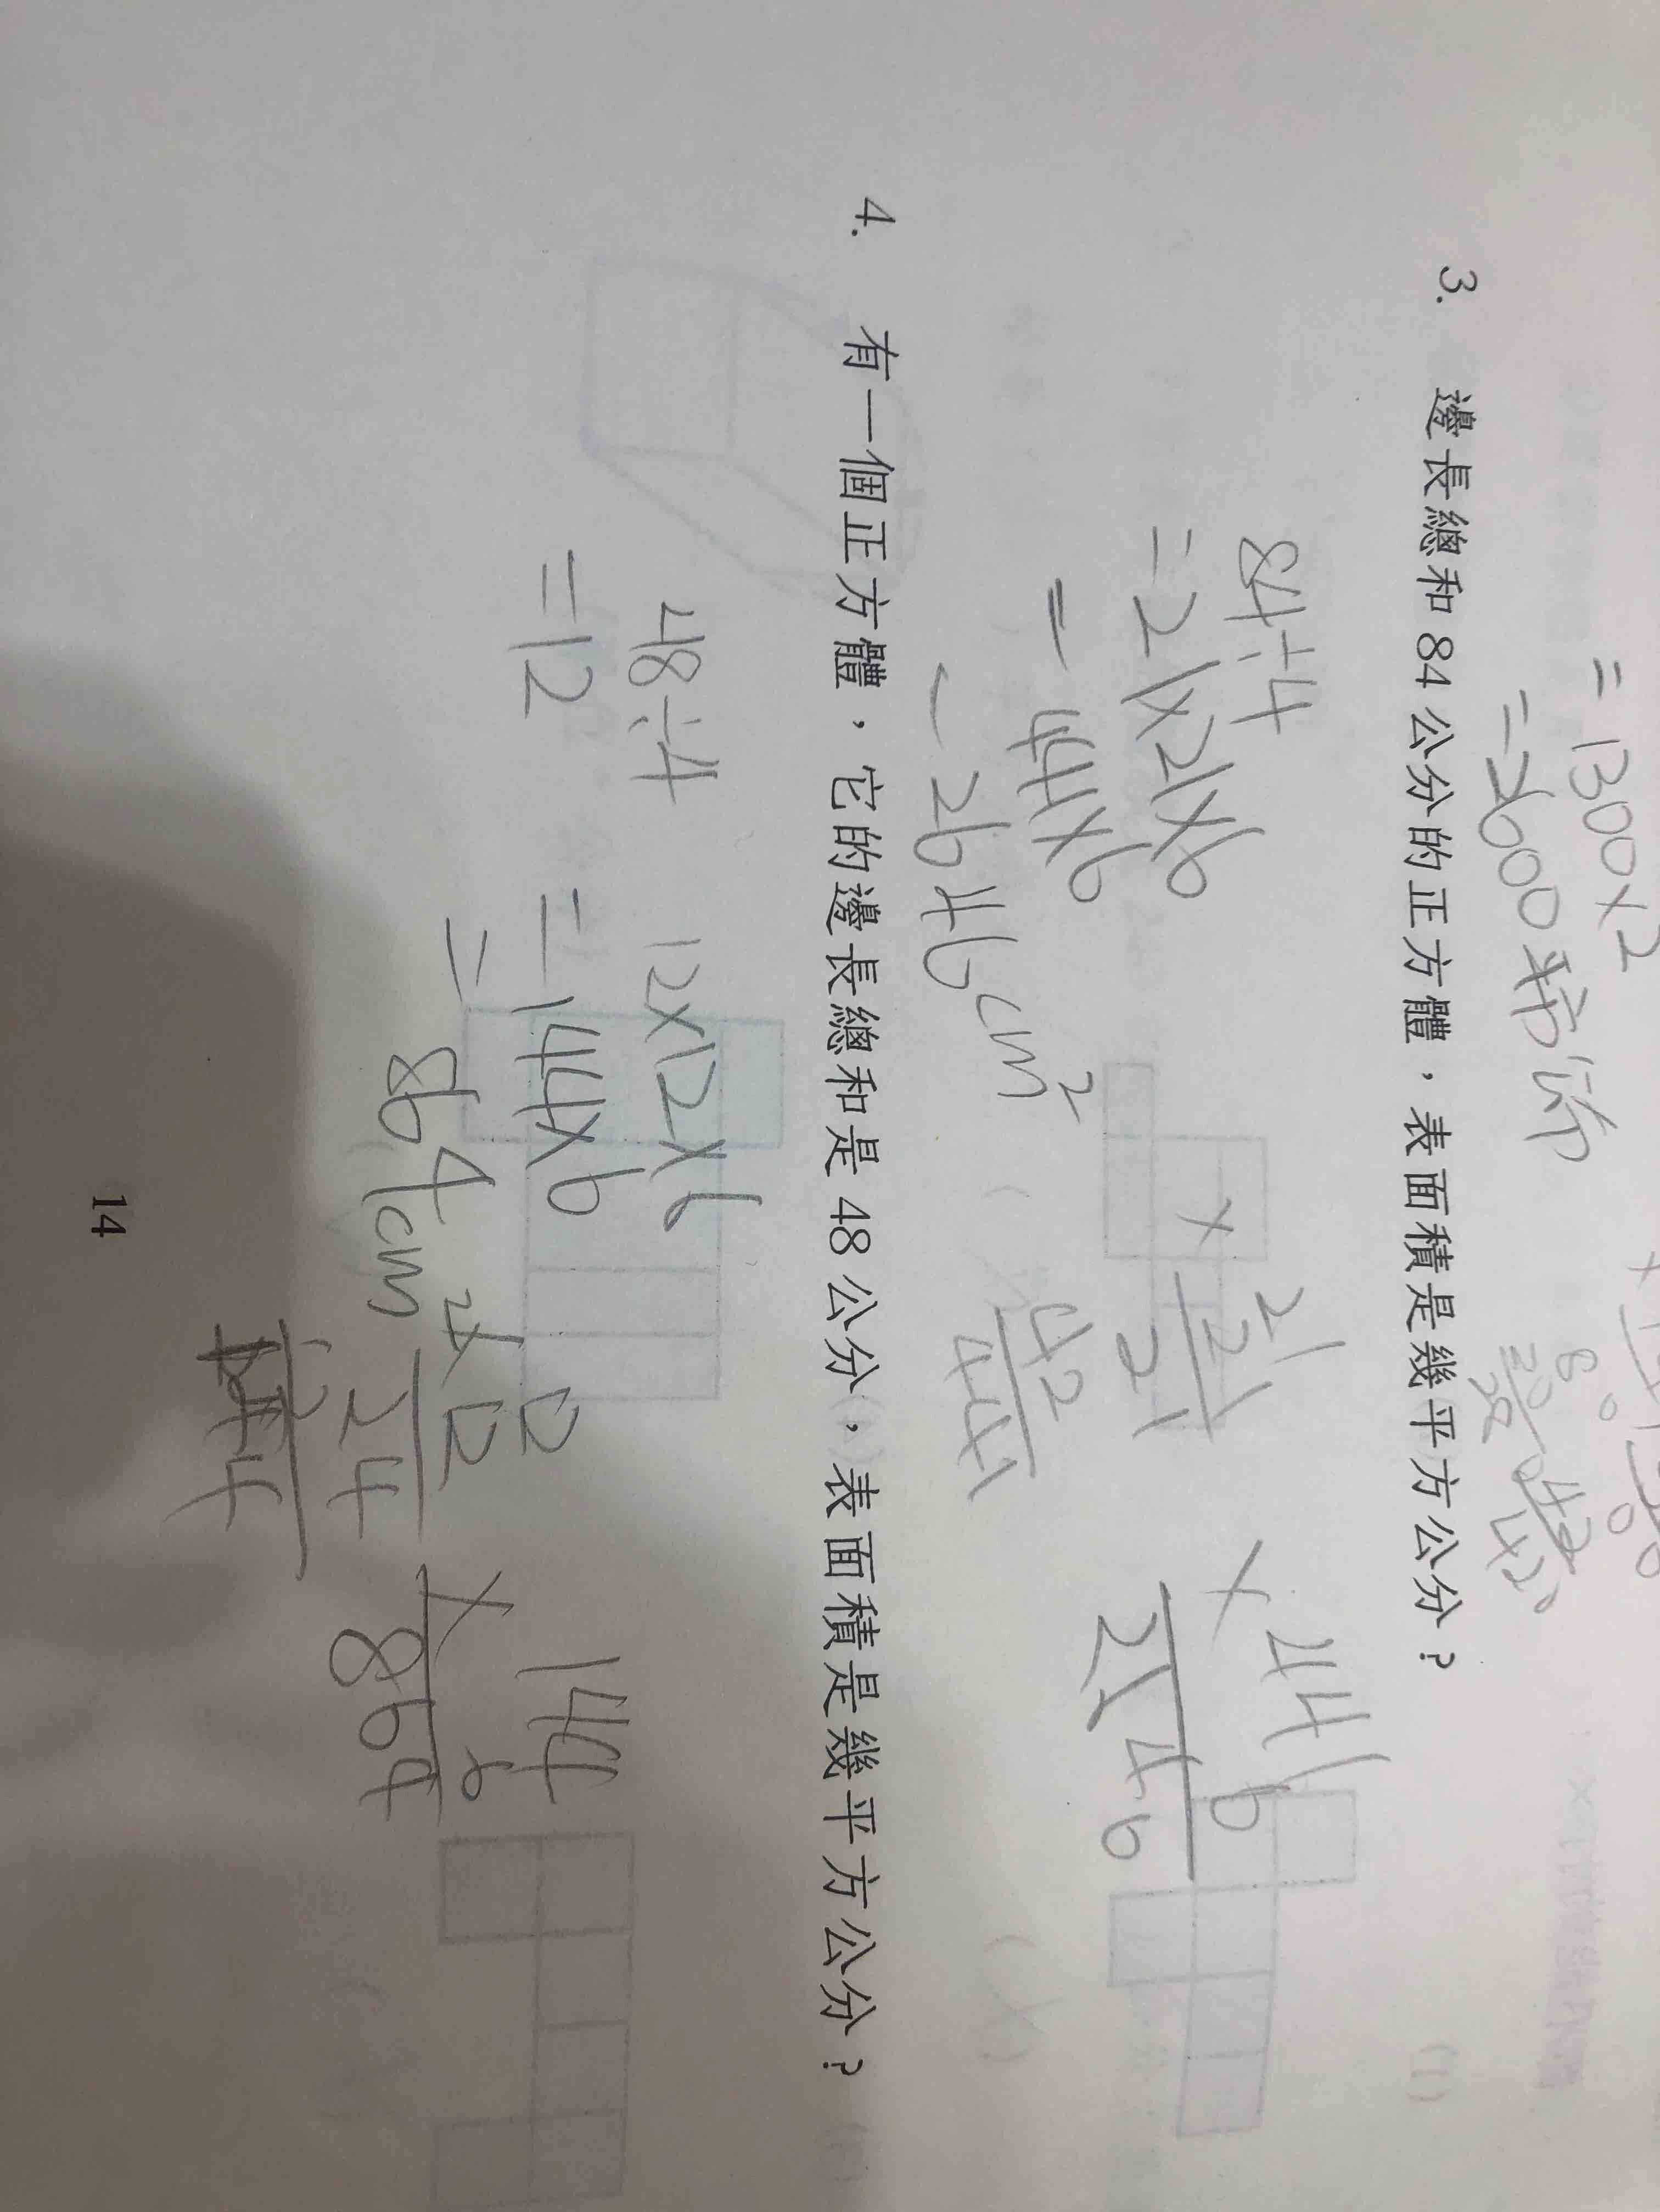 =1300×2
=2600平方公分
3. 邊長總和 84 公分的正方體，表面積是幾平方公分？
84÷4
=21×21×6
=441×6
=2646cm²
21
×21
21
42
441
441
× 6
2646
4. 有一個正方體，它的邊長總和是 48 公分，表面積是幾平方公分？
48÷4
=12
12×12×6
=144×6
=864cm²
12
×12
24
144
× 6
864
14